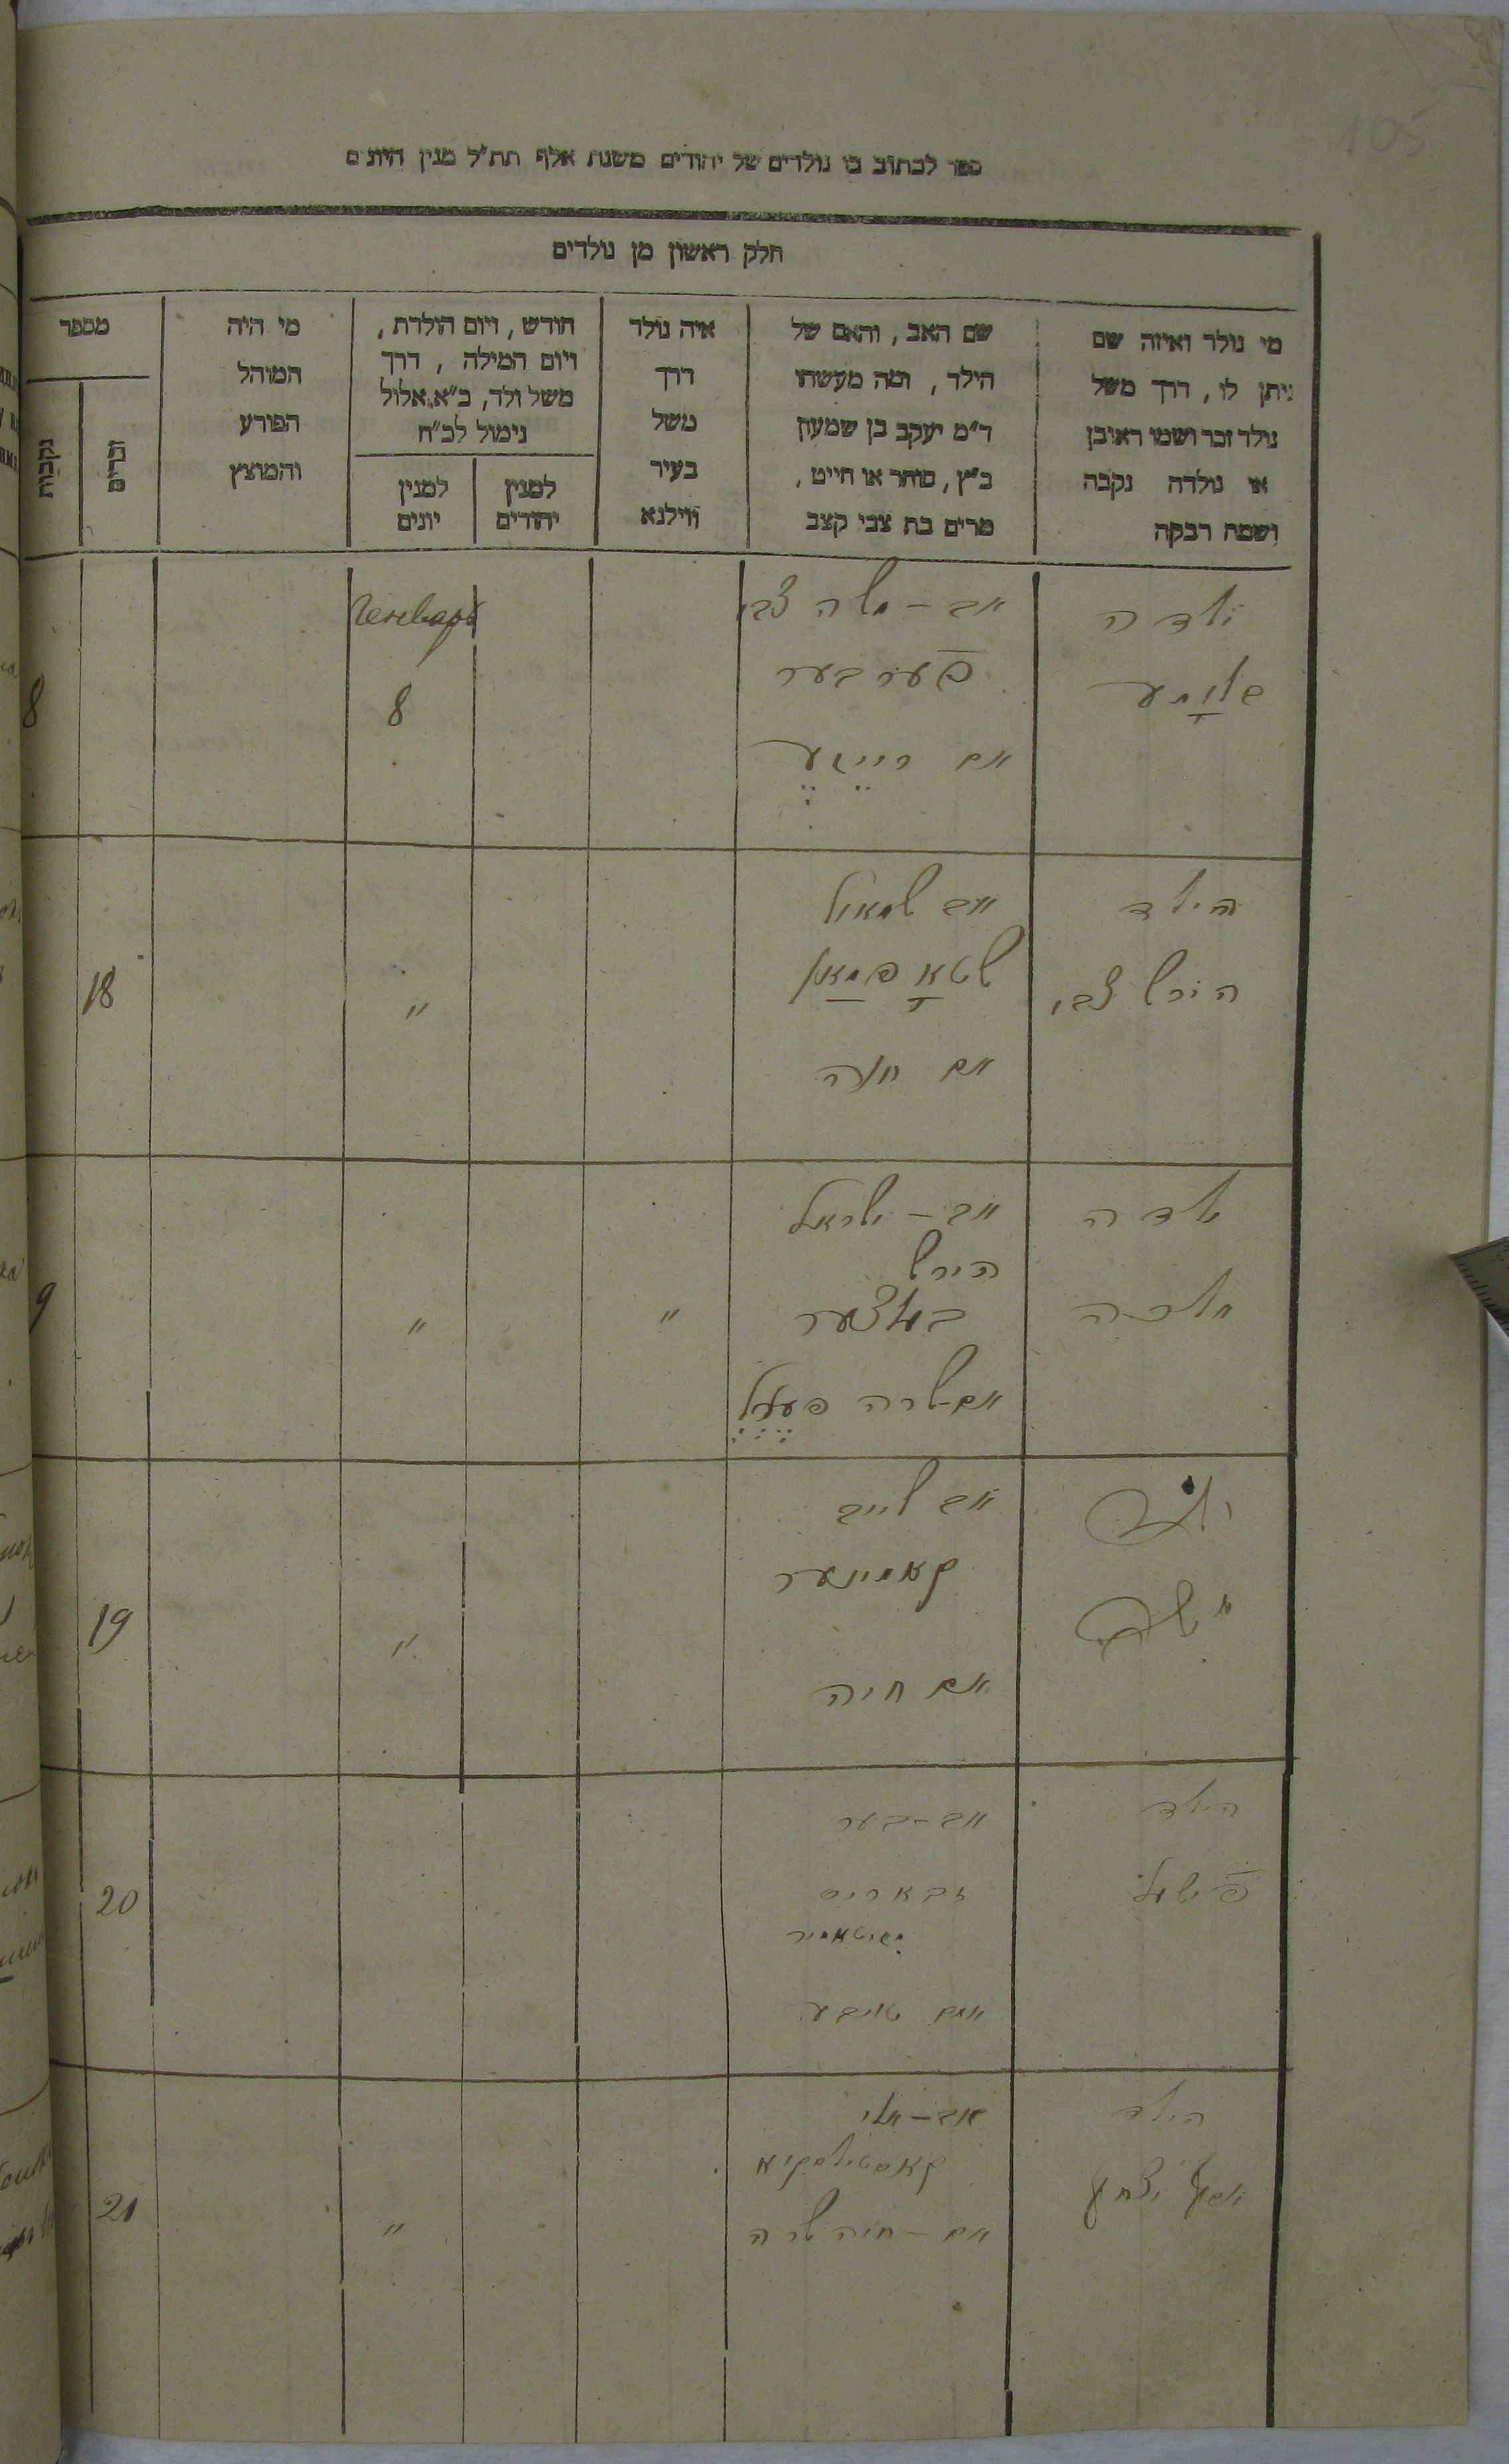 105
ספר לכתוב בו נולדים של יהודים משנת אלף תת״ל מנין היונים
חלק ראשון מן נולדים
מי נולד ואיזה שם
ניתן לו, דרך משל
נולד זכר ושמו ראובן
או נולדה נקבה
ושמה רבקה
שם האב, והאם של
הילד, ומה מעשהו
ד״מ יעקב בן שמעון
כ״ץ, סוחר או חייט,
מרים בת צבי קצב
איה נולד
דרך
משל
בעיר
ווילנא
חודש, ויום הולדת,
ויום המילה, דרך
משל ולד, כ״א אלול
נימול לכ״ח
למנין
יהודים
למנין
יונים
מי היה
המוהל
הפורע
והמוצץ
מספר
זכרים
נקבות
ילדה
אב – משה צבי
פערבער
אם רייזע
8
8
הילד
הירש צבי
אב שמואל
אם חנה
"
18
ילדה
מלכה
אב – ישראל
הירש
אם שרה פערל
"
"
9
ילד
אב לייב
אם חיה
"
19
הילד
פישל
אב – בער
אם טויבע
20
הילד
יוסף יצחק
אב – אלי
אם – חיה שרה
"
21